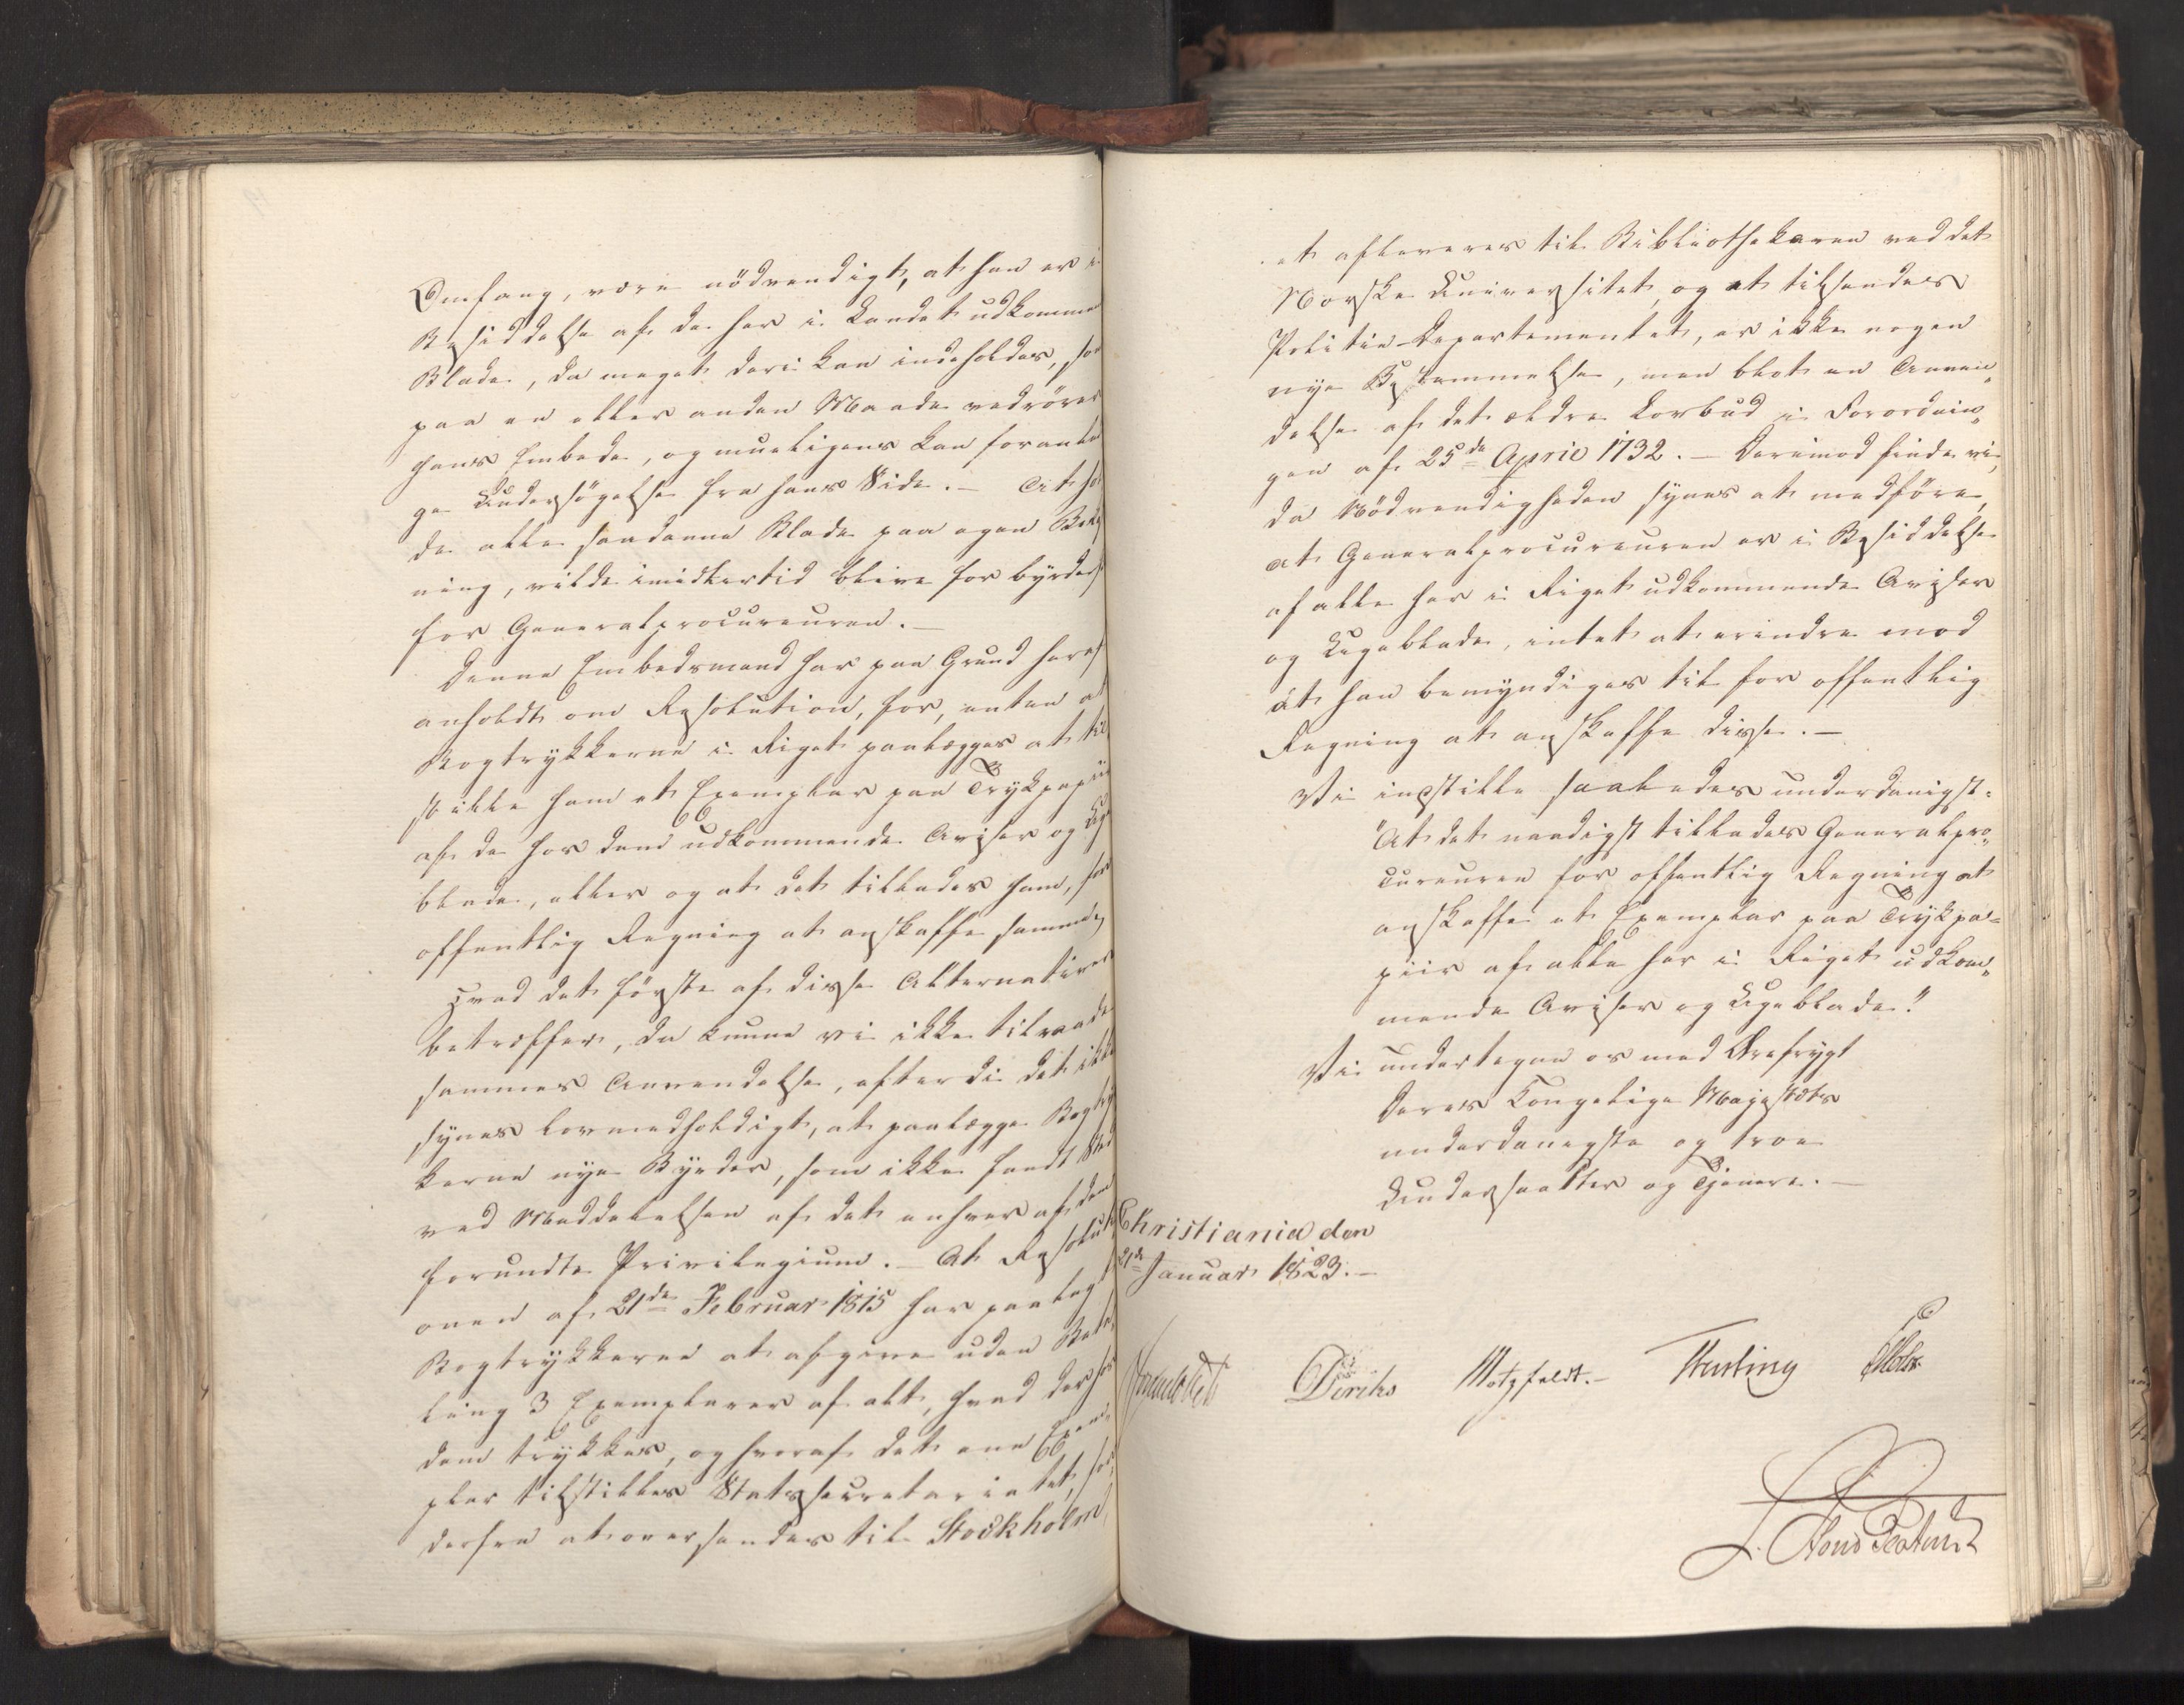 Omfang, være nödvendigt, at han er i
Besiddelse af de her i Landet udkommen
Blade, da meget deri kan indeholdes, som
paa en eller anden Maade vedrører
hans Embede, og mueligens kan foranle
ge Undersögelse fra hans Side. – At hol
de alle saadanne Blade paa egen Bekost
ning, vilde imidlertid blive for byrdefuld
for Generalprocureuren. –
Denne Embedsmand har paa Grund heraf
anholdt om Resolution, for, enten at
Bogtrykkerne i Riget paalægges at til
stille ham et Exemplar paa Trykpapiir
af de hos dem udkommende Aviser og Uge
blade, eller og at det tillades ham, for
offentlig Regning at anskaffe samme.
Hvad det förste af disse Alternativer
betræffer, da kunne vi ikke tilraade
sammes Anvendelse, efterdi det ikke
synes lovmedholdigt, at paalægge Bogtryk
kerne nye Byrder, som ikke fandt Sted
ved Meddelelsen af det enhver af dem
forundte Privilegium. – At Resoluti
onen af 21de Februar 1815 har paalagt
Bogtrykkerne at afgive uden Beta
ling 3 Exemplarer af alt, hvad der hos
dem trykkes, og hvoraf det ene Exem
plar tilstilles Statssecretariatet, for
derfra at oversendes til Stockholm,
et afleveres til Bibliothekaren ved det
Norske Universitet, og et tilsendes
Politie-Departementet, er ikke nogen
nye Bestemmelse, men blot en Anven„
delse af det ældre Lovbud i Forordnin„
gen af 25de April 1732. – Derimod finde vi,
da Nödvendigheden synes at medföre,
at Generalprocureuren er i Besiddelse
af alle her i Riget udkommende Aviser
og Ugeblade, intet at erindre mod
at han bemyndiges til for offentlig
Regning at anskaffe disse. –
Vi indstille saaledes underdanigst:
"At det naadigst tillades Generalpro„
cureuren for offentlig Regning at
anskaffe et Exemplar paa Trykpa=
piir af alle her i Riget udkom„
mende Aviser og Ugeblade."
Vi undertegne os med Ærefrygt
Deres Kongelige Majestæts
underdanigste og troe
Undersaatter og Tjenere. –
Christiania den
21de Januar 1823. –
Diriks Motzfeldt. –